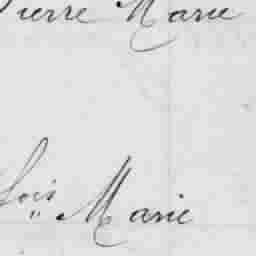 Pierre Marie
Marie